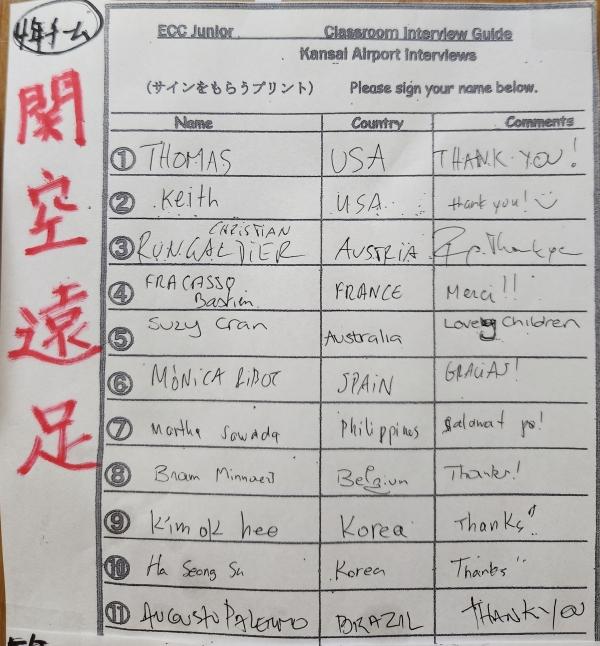 4年チーム
関空遠足
ECC Junior Classroom Interview Guide
Kansai Airport Interviews
(サインをもらうプリント) Please sign your name below.
Name Country Comments
① THOMAS USA THANK YOU!
② Keith USA thank you!
CHRISTIAN
③ AUSTRIA Thank you
④ FRACASSO Bastien FRANCE Merci!!
⑤ Suzy Cran Australia Lovely Children
⑥ MÒNICA RIPOT SPAIN GRACIAS!
⑦ Martha Sawada Philippines Salamat po!
⑧ Bram Minnaert Belgium Thanks!
⑨ Kim ok hee Korea Thanks!!
⑩ Ha Seong Su Korea Thanks
⑪ AUGUSTO PALERMO BRAZIL THANK YOU